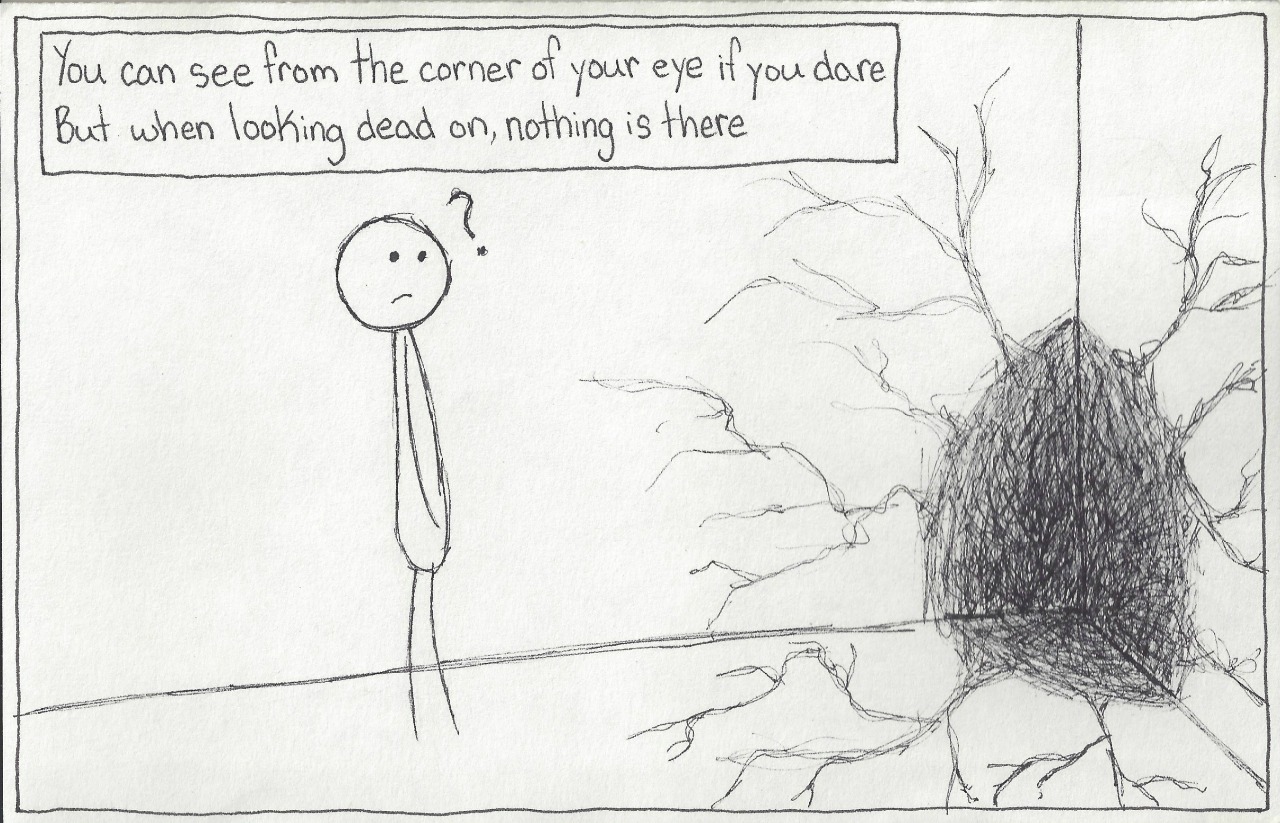 You can see from the corner of your eye if you dare
But when looking dead on, nothing is there
?